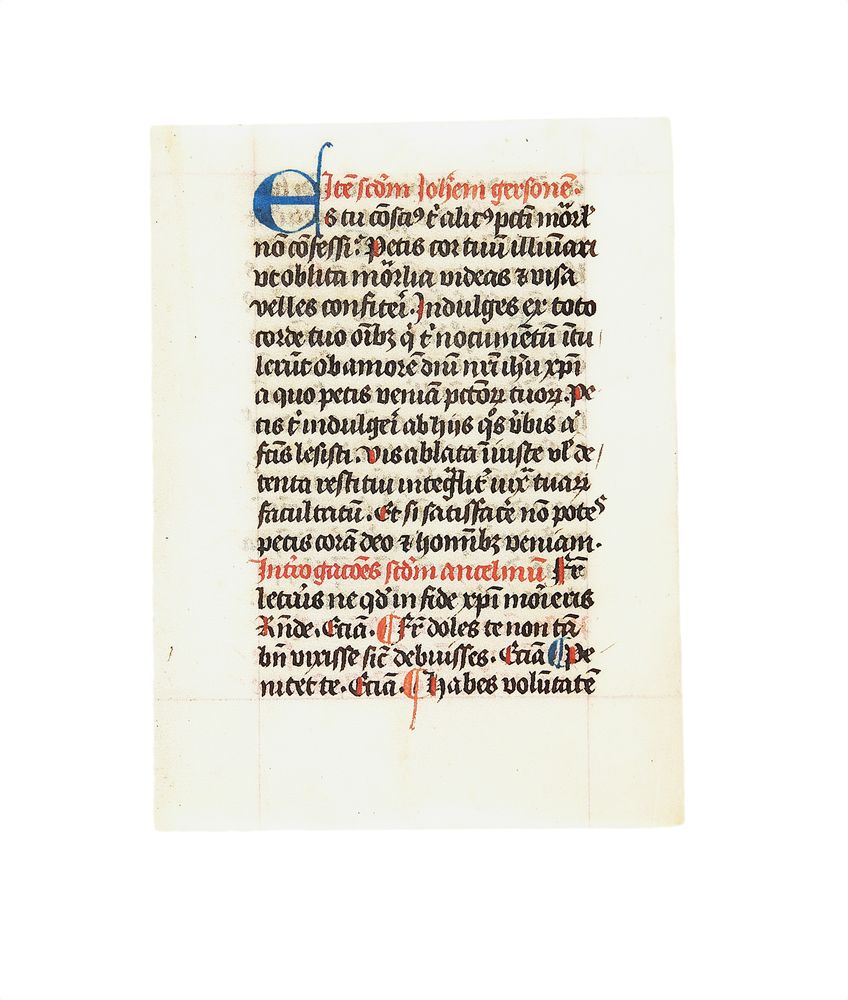 Itē scdm̄ Joħem gersonē.
Es tu cōsciꝰ t̉ alicꝰ pcti mōrlʼ
nō cōfessi? Petis cor tuū illūīari
vt oblita mōrlia videas ⁊ visa
velles confiteri. Indulges ex toto
corde tuo oībꝫ q̇ t̉ nocumētū ītu
lerūt ob amorē dnī nrī ihū xpī
a quo petis veniā pctōꝝ tuoꝝ. Pe
tis t̉ indulgeri ab hijs q̊s v̉bis a̍
fcīs lesisti. Vis ablata īiuste vlʼ de
tenta restitui integͣlit̉ iux̄ tuaꝝ
facultatū. Et si satisfacē nō potes
petis corā deo ⁊ hominībꝫ veniam.
Int̉rogacōes scdm̄ ancelmū Fr̄
letaris ne qđ in fide xpī morieris
Rn̄de. Eciā. Fr̄ doles te non tā
bn̄ vixisse sic̄ debuisses. Eciā Pe
nitet te. Eciā. Habes volūtatē